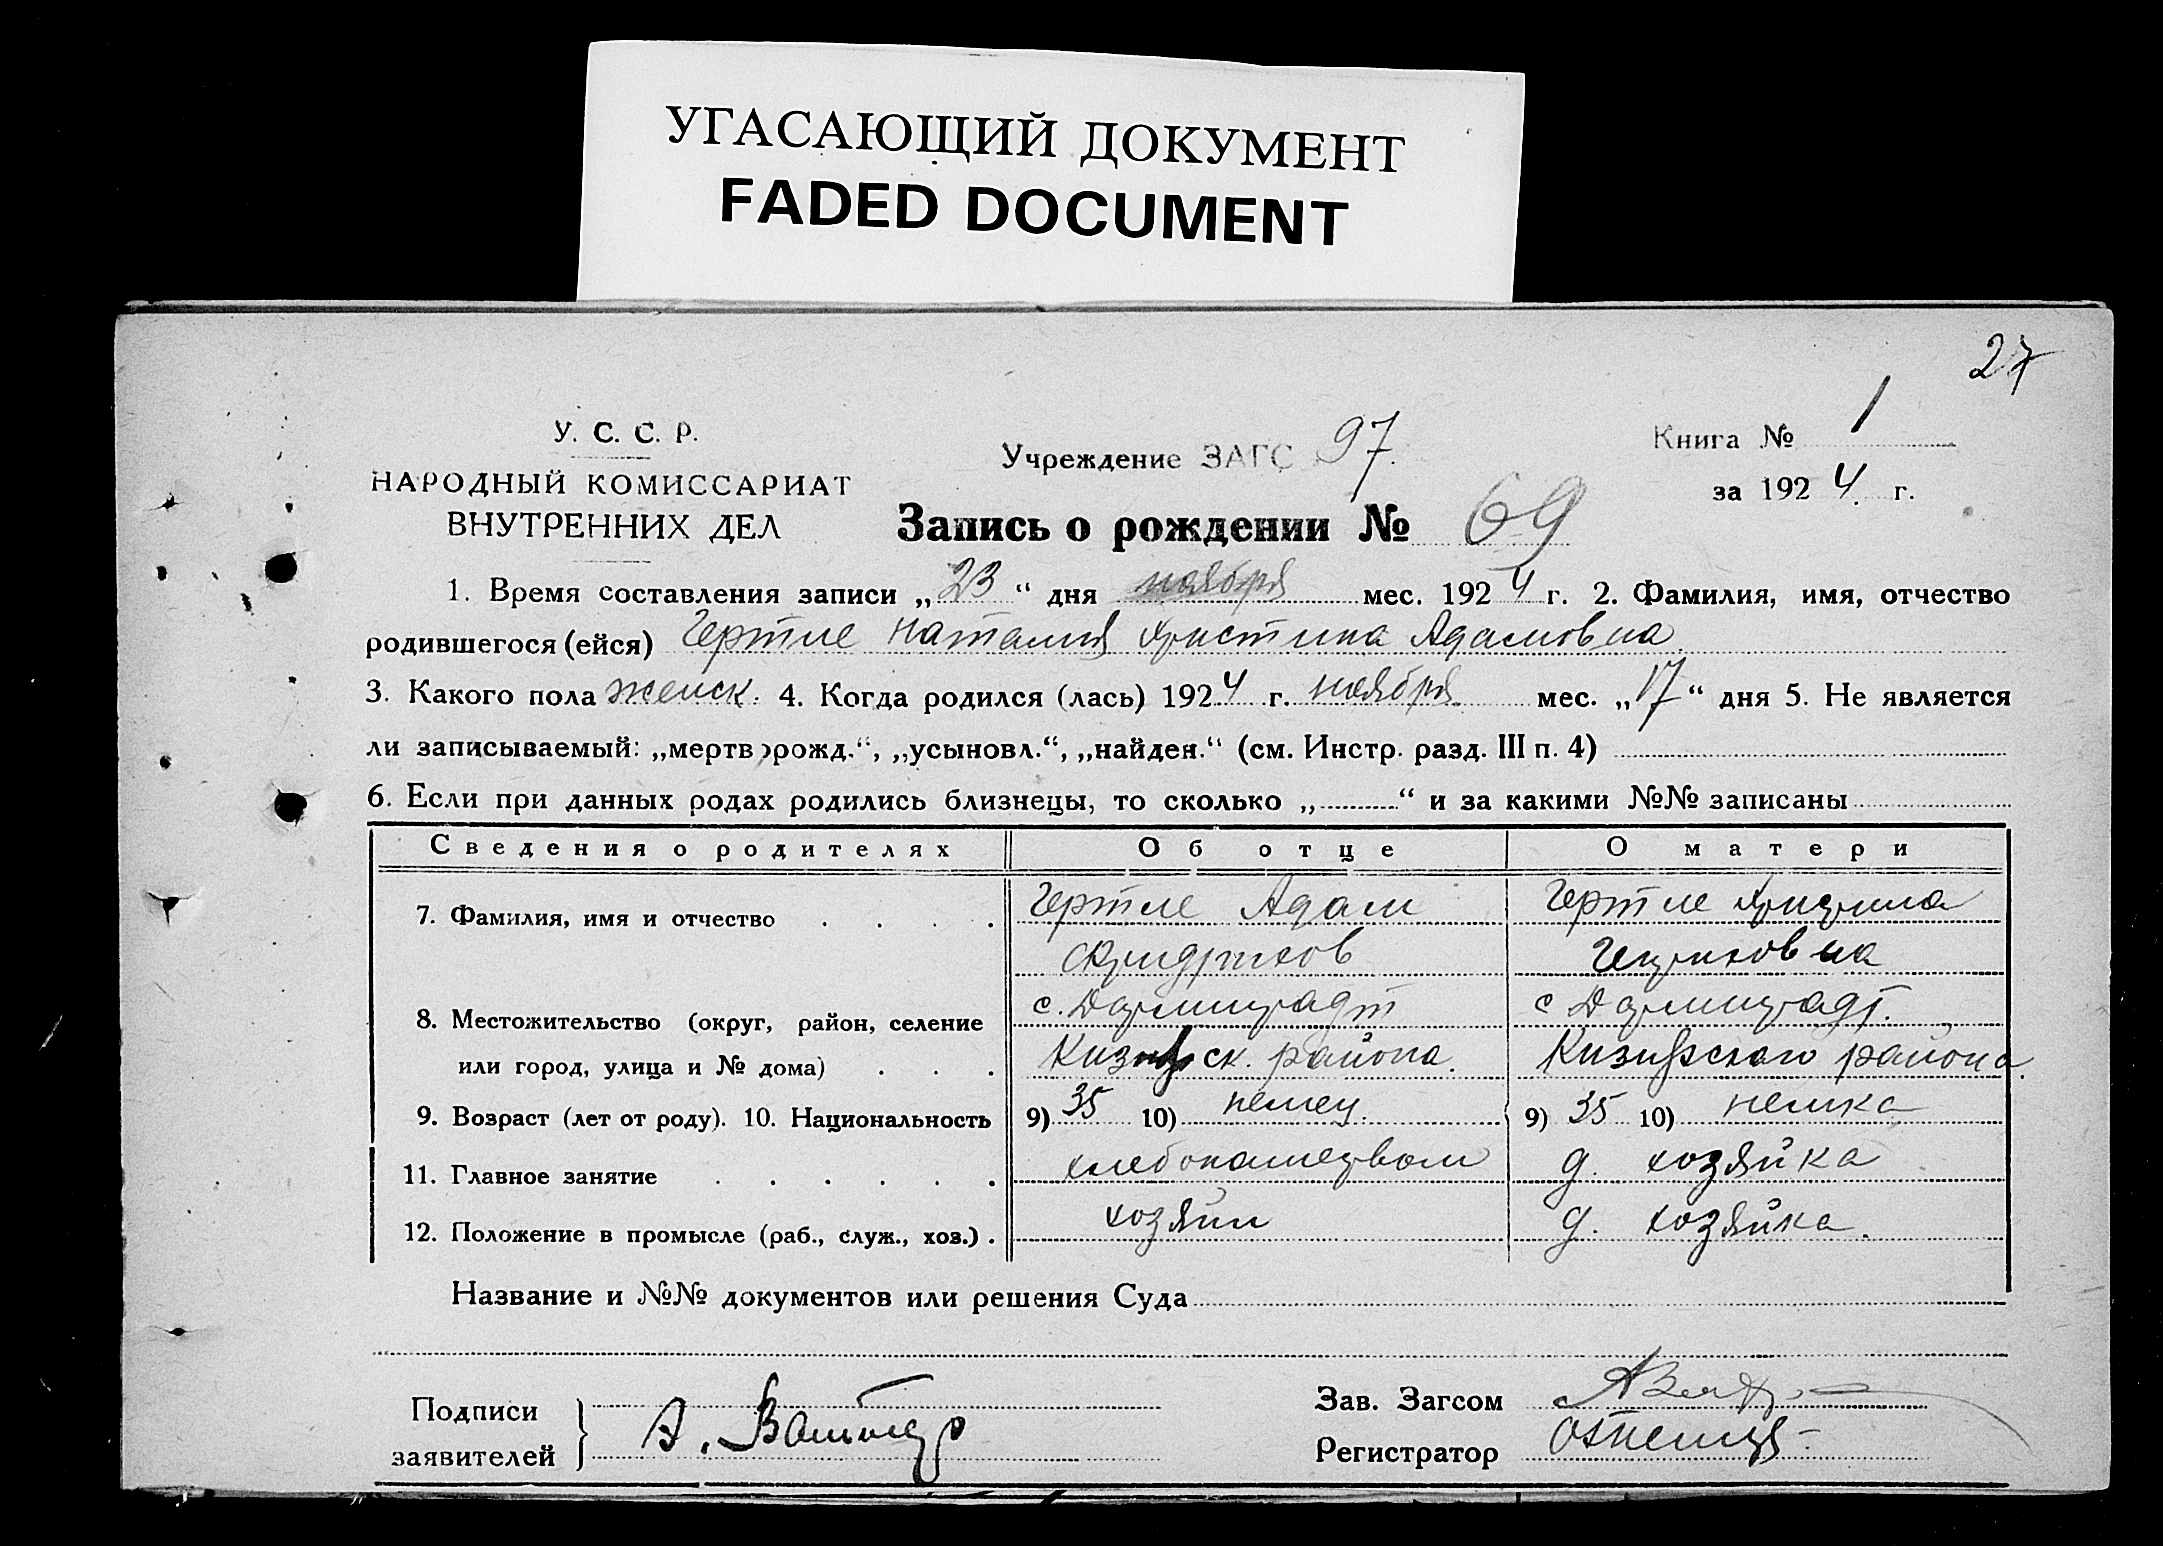 УГАСАЮЩИЙ ДОКУМЕНТ
FADED DOCUMENT
27
У. С. С. Р.
НАРОДНЫЙ КОМИССАРИАТ
ВНУТРЕННИХ ДЕЛ
Учреждение ЗАГС 97.
Книга № 1
за 1924 г.
Запись о рождении № 69
1. Время составления записи „23“ дня ноября мес. 1924 г. 2. Фамилия, имя, отчество
родившегося (ейся) Гертле Наталия Христина Адамовна
3. Какого пола женск. 4. Когда родился (лась) 1924 г. ноября мес. „17“ дня 5. Не является
ли записываемый: „мертворожд.“, „усыновл.“, „найден.“ (см. Инстр. разд. III п. 4)
6. Если при данных родах родились близнецы, то сколько „ “ и за какими №№ записаны
Сведения о родителях Об отце О матери
7. Фамилия, имя и отчество Гертле Адам Гертле
Фридрихов
8. Местожительство (округ, район, селение с. Дармштадт с Дармштадт.
или город, улица и № дома) ск. района. района.
9. Возраст (лет от роду). 10. Национальность 9) 35 10) немец. 9) 35 10) немка
11. Главное занятие хлебопашеством д. хозяйка
12. Положение в промысле (раб., служ., хоз.) хозяин д. хозяйка.
Название и №№ документов или решения Суда
Подписи
заявителей
А.
Зав. Загсом
Регистратор